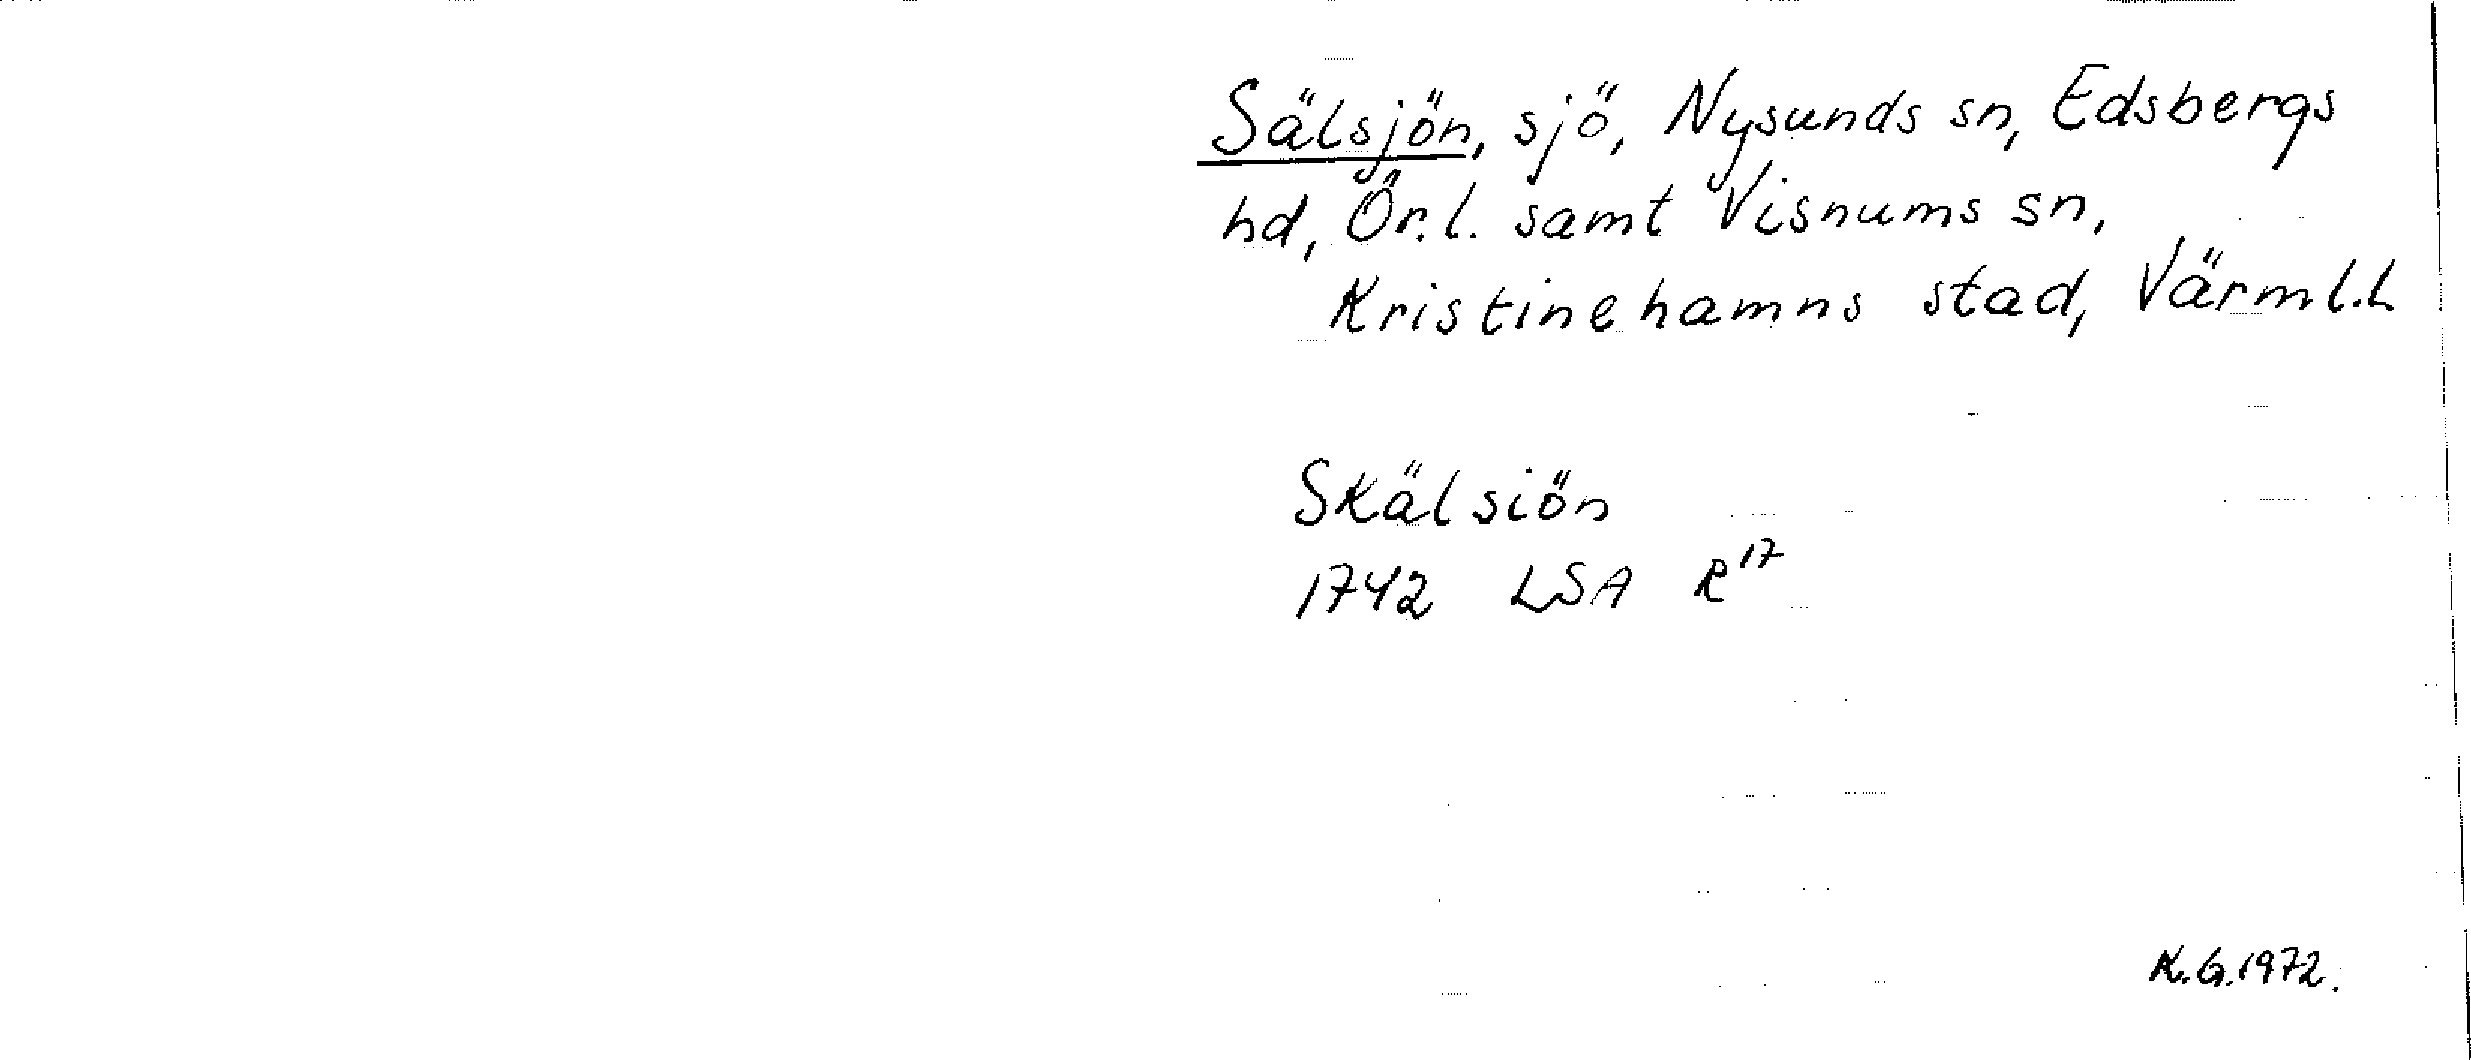 Sälsjön, sjö, Nysunds sn, Edsbergs
hd, Ör.l. samt Visnums sn,
Kristinehamns stad, Värml.l.
Skälsiön
1742 LSA R17
K.G.1972.